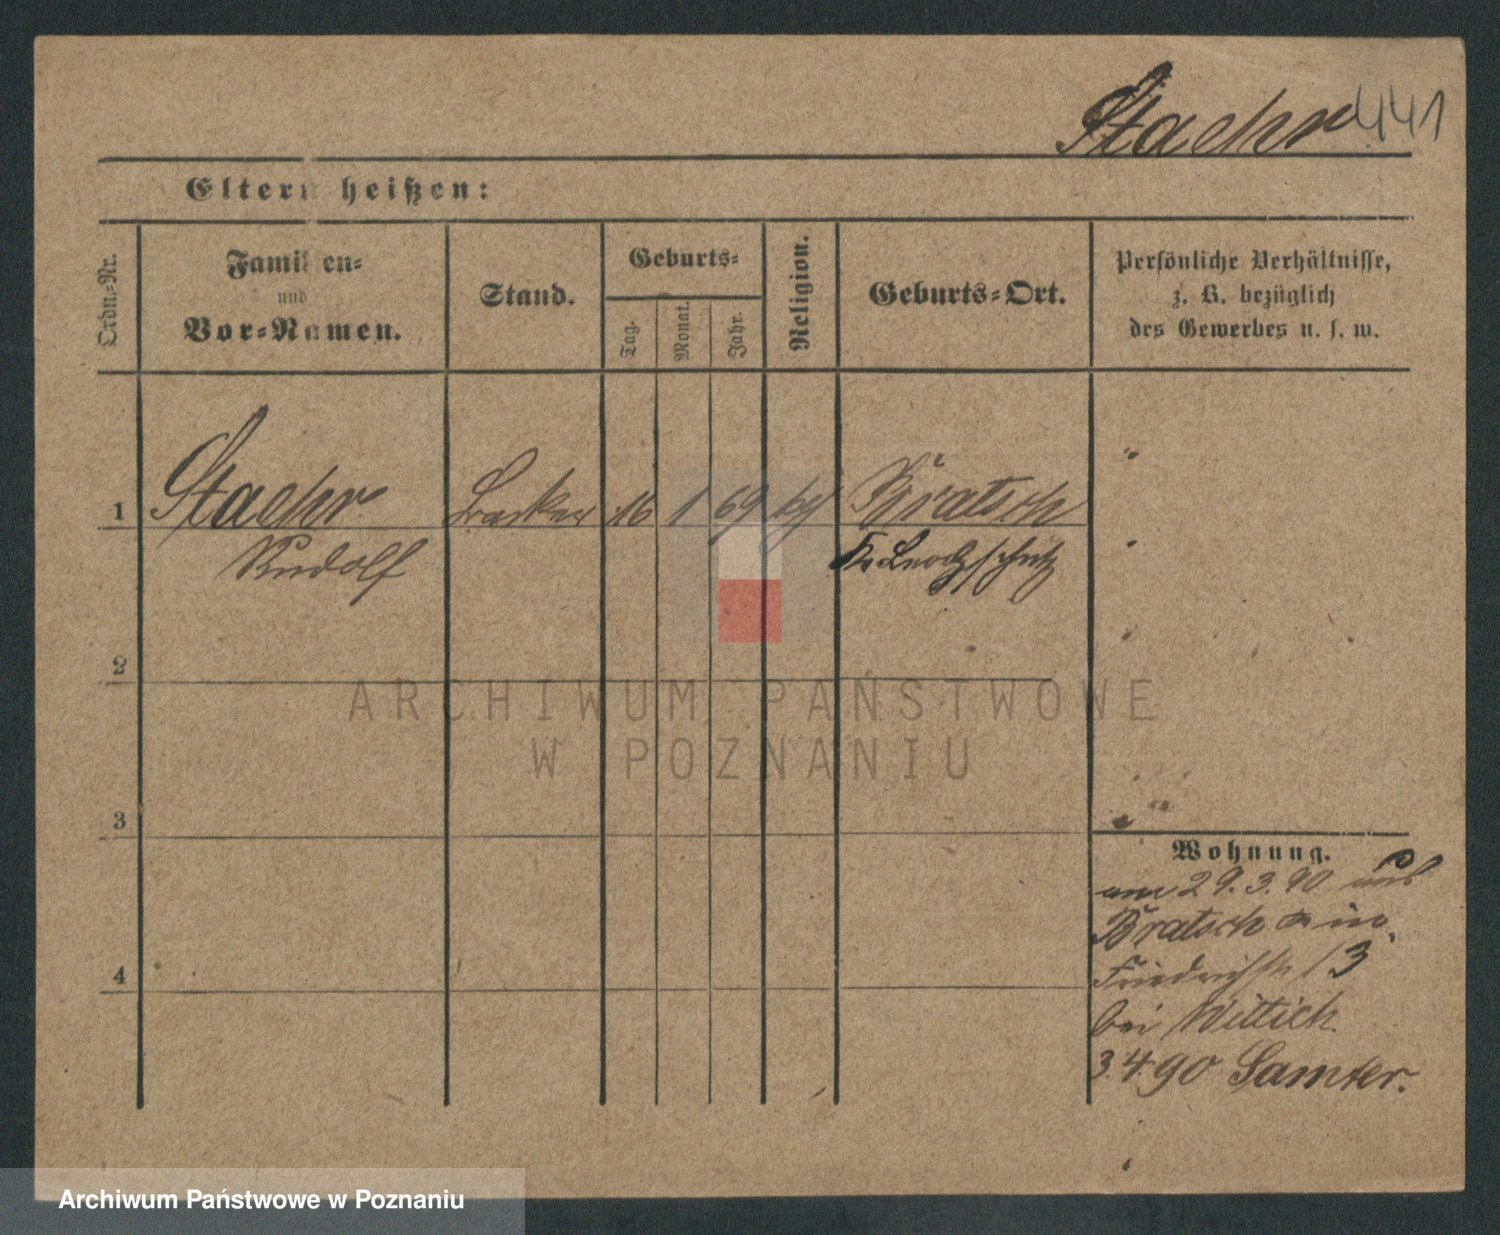 Staehr 441
Eltern heißen:
Ordn.-Nr.
Familien-
und
Vor-Namen.
Stand.
Geburts-
Tag.
Monat.
Jahr.
Religion.
Geburts-Ort.
Persönliche Verhältnisse,
z. B. bezüglich
des Gewerbes u. s. w.
1 Staehr 16 1 69 Bratsch
Rudolf Kr. Leobschütz
2
3
4
Wohnung.
am 29.3.90
Bratsch in
Friedrichstr 13
bei Wittich
3.4.90 Samter.
ARCHIWUM PAŃSTWOWE
W POZNANIU
Archiwum Państwowe w Poznaniu